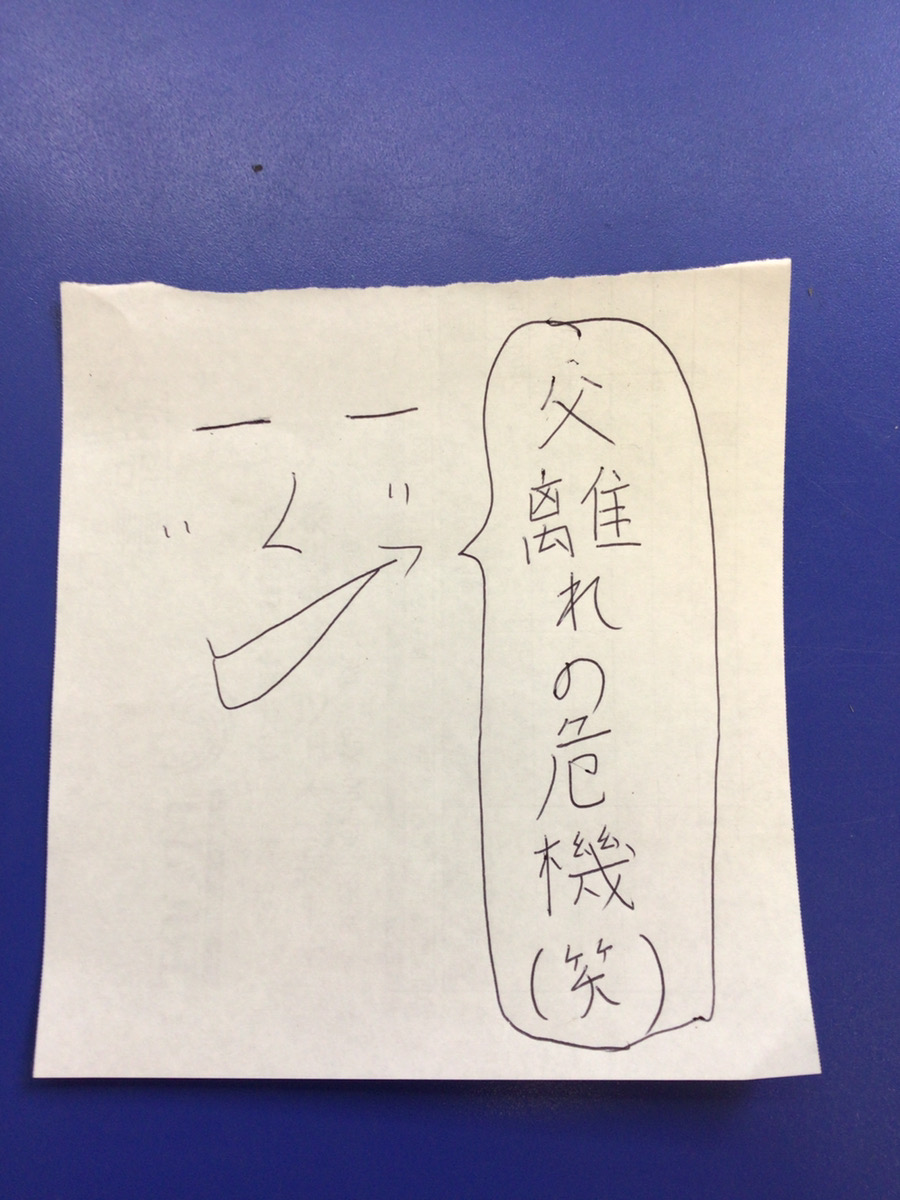 父離れの危機(笑)